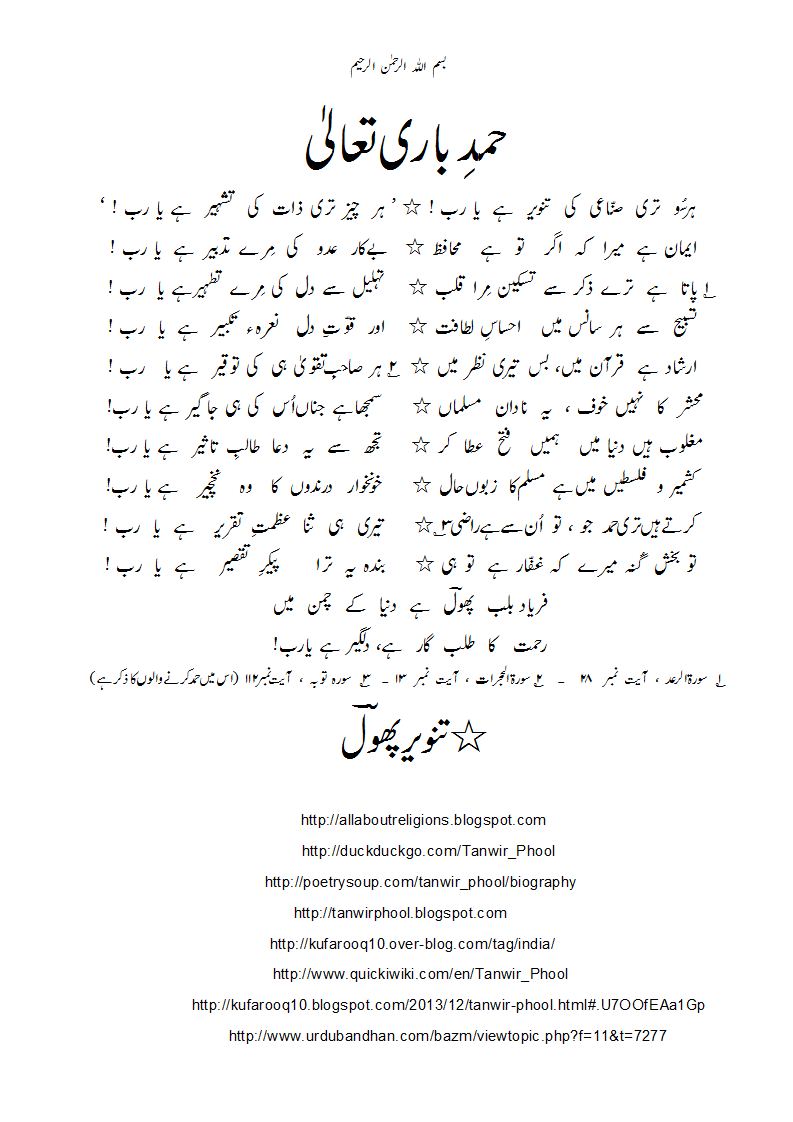 بسم اللہ الرحمٰن الرحیم
حمدِ باری تعالیٰ
ہرسُو تری صنّاعی کی تنویر ہے یا رب ! ☆ ’ ہر چیز تری ذات کی تشہیر ہے یا رب ! ‘
ایمان ہے میرا کہ اگر تو ہے محافظ ☆ بےکار عدو کی مِرے تدبیر ہے یا رب !
۱؎ پاتا ہے ترے ذکر سے تسکین مِرا قلب ☆ تہلیل سے دل کی مِرے تطہیرہے یا رب !
تسبیح سے ہر سانس میں احساسِ لطافت ☆ اور قوّتِ دل نعرہء تکبیر ہے یا رب !
ارشاد ہے قرآن میں، بس تیری نظر میں ☆ ۲؎ ہر صاحبِ تقویٰ ہی کی توقیر ہے یا رب !
محشر کا نہیں خوف ، یہ نادان مسلماں ☆ سمجھا ہے جناں اُس کی ہی جاگیر ہے یا رب!
مغلوب ہیں دنیا میں ہمیں فتح عطا کر ☆ تجھ سے یہ دعا طالبِ تاثیر ہے یا رب!
کشمیر و فلسطیں میں ہے مسلم کا زبوں حال ☆ خونخوار درندوں کا وہ نخچیر ہے یا رب!
کرتے ہیں تری حمد جو ، تو اُن سے ہے راضی ۳؎ ☆ تیری ہی ثنا عظمتِ تقریر ہے یا رب !
تو بخش گنہ میرے کہ غفّار ہے تو ہی ☆ بندہ یہ ترا پیکرِ تقصیر ہے یا رب !
فریاد بلب پھولؔ ہے دنیا کے چمن میں
رحمت کا طلب گار ہے، دلگیر ہے یارب!
۱؎ سورۃ الرعد ، آیت نمبر ۲۸ ۔ ۲؎ سورۃ الحجرات ، آیت نمبر ۱۳ ۔ ۳؎ سورہ توبہ ، آیت نمبر۱۱۲ (اس میں حمد کرنے والوں کا ذکر ہے)
☆ تنویر پھولؔ
http://allaboutreligions.blogspot.com
http://duckduckgo.com/Tanwir_Phool
http://poetrysoup.com/tanwir_phool/biography
http://tanwirphool.blogspot.com
http://kufarooq10.over-blog.com/tag/india/
http://www.quickiwiki.com/en/Tanwir_Phool
http://kufarooq10.blogspot.com/2013/12/tanwir-phool.html#.U7OOfEAa1Gp
http://www.urdubandhan.com/bazm/viewtopic.php?f=11&t=7277